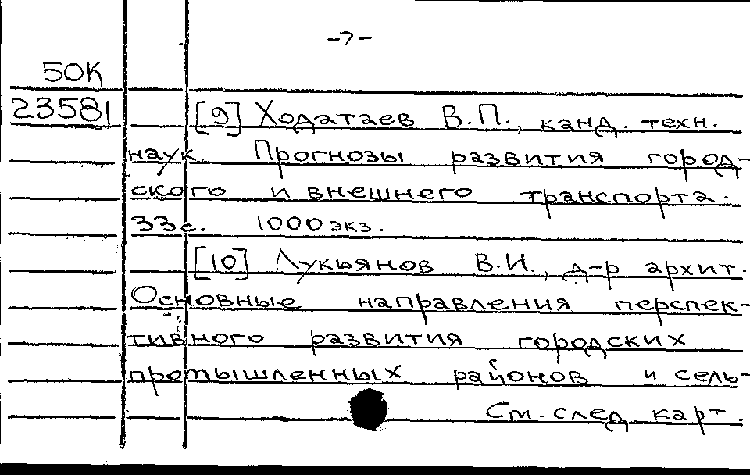 -7-
50К
23581 [9] Ходатаев В.П., канд. техн.
наук. Прогнозы развития город-
ского и внешнего транспорта.
33с. 1000 экз.
[10] Лукьянов В.И., д-р архит.
Основные направления перспек-
тивного развития городских
промышленных районов и сель-
См. след. карт.